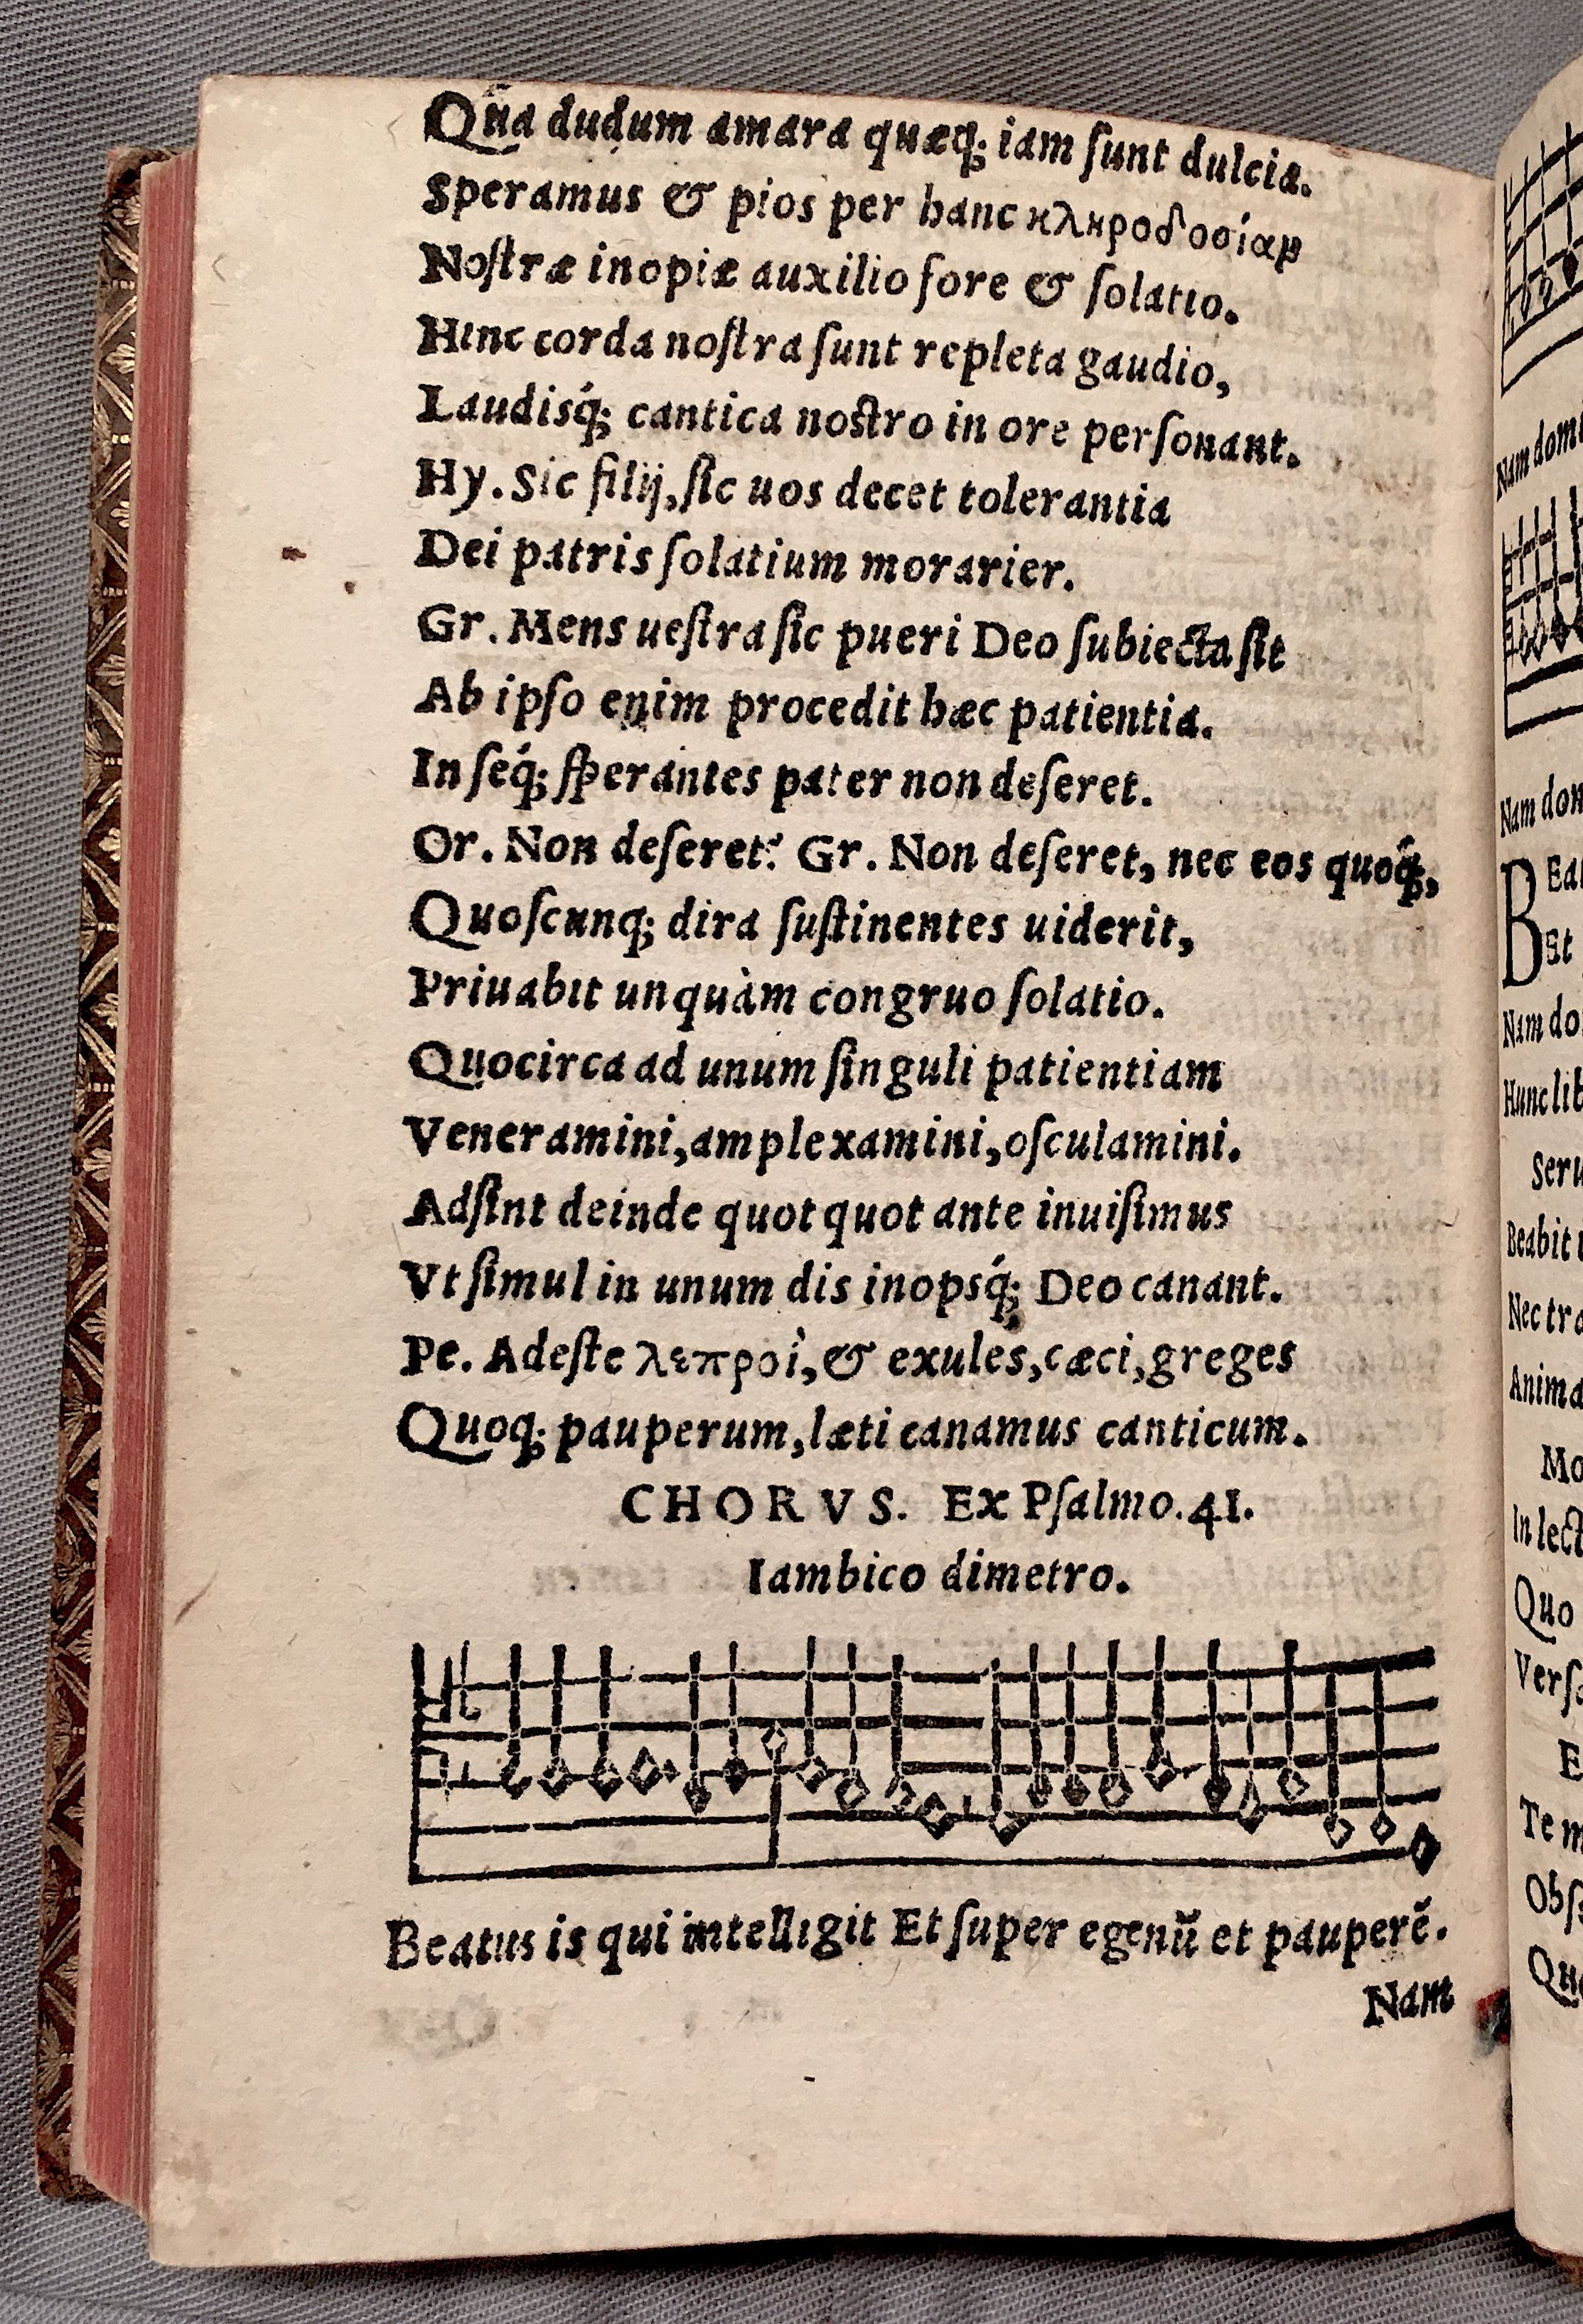 Qua dudum amara quæq; iam ſunt dulcia.
Speramus & pios per hanc κληροδοσίαμ
Noſtræ inopiæ auxilio fore & ſolatio.
Hinc corda noſtra ſunt repleta gaudio,
Laudisq́; cantica noſtro in ore perſonant.
Hy. Sic filij, ſic uos decet tolerantia
Dei patris ſolatium morarier.
Gr. Mens ueſtra ſic pueri Deo ſubiecta ſit
Ab ipſo enim procedit hæc patientia.
In ſeq́; ſperantes pater non deſeret.
Or. Non deſeret? Gr. Non deſeret, nec eos quoq́;,
Quoſcunq; dira ſuſtinentes uiderit,
Priuabit unquàm congruo ſolatio.
Quocirca ad unum ſinguli patientiam
Veneramini, amplexamini, oſculamini.
Adſint deinde quotquot ante inuiſimus
Vt ſimul in unum dis inopsq́; Deo canant.
Pe. Adeſte λεπροὶ, & exules, cæci, greges
Quoq; pauperum, læti canamus canticum.
CHORVS. Ex Pſalmo. 41.
Iambico dimetro.
Beatus is qui intelligit Et ſuper egenũ et pauperẽ.
Nam
Nam
B
Et
Hunc
Nec
In
Quo
Te